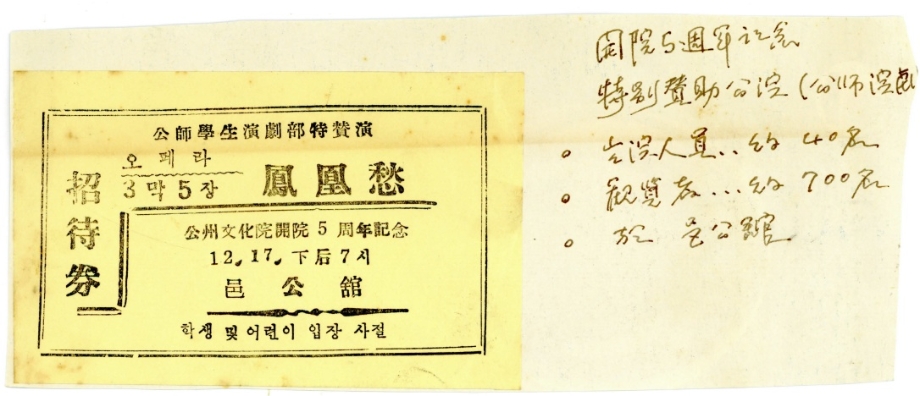 公師學生演劇部特賛演
오페라
3막5장 鳳凰愁
招待券
公州文化院開院 5 周年記念
12. 17. 下后 7시
邑公舘
학생 및 어린이 입장 사절
開院5週年記念
特別賛助公演 (公師演劇
。出演人員..約 40名
。観覧者...約 700名
。於 邑公館